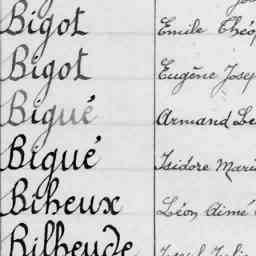 Bigot Emile Théop
Bigot Eugène Josep
Bigué Armand Le
Bigué Isidore Mari
Biheux Léon Aimé
Bilheude